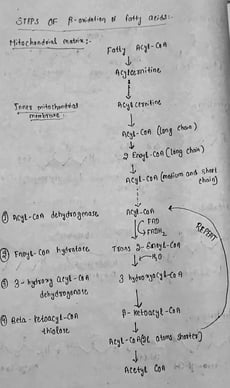 STEPS OF β-oxidation of fatty acids:-
Mitochondrial matrix:-
Fatty Acyl-CoA
Acylcernitine
Inner mitochondrial
membrane:-
Acylcernitine
Acyl-CoA (long chain)
2 Enoyl-CoA (long chain)
Acyl-CoA (medium and short
chain)
① Acyl-CoA dehydrogenase
Acyl-CoA
FAD
FADH₂
② Enoyl-CoA hydratase
Trans 2-Enoyl-CoA
H₂O
③ 3-hydroxy acyl-CoA
dehydrogenase
3 hydroxyacyl-CoA
REPEAT
④ Beta-ketoacyl-CoA
thiolase
β-Ketoacyl-CoA
Acyl-CoA (2C atoms shorter)
Acetyl CoA